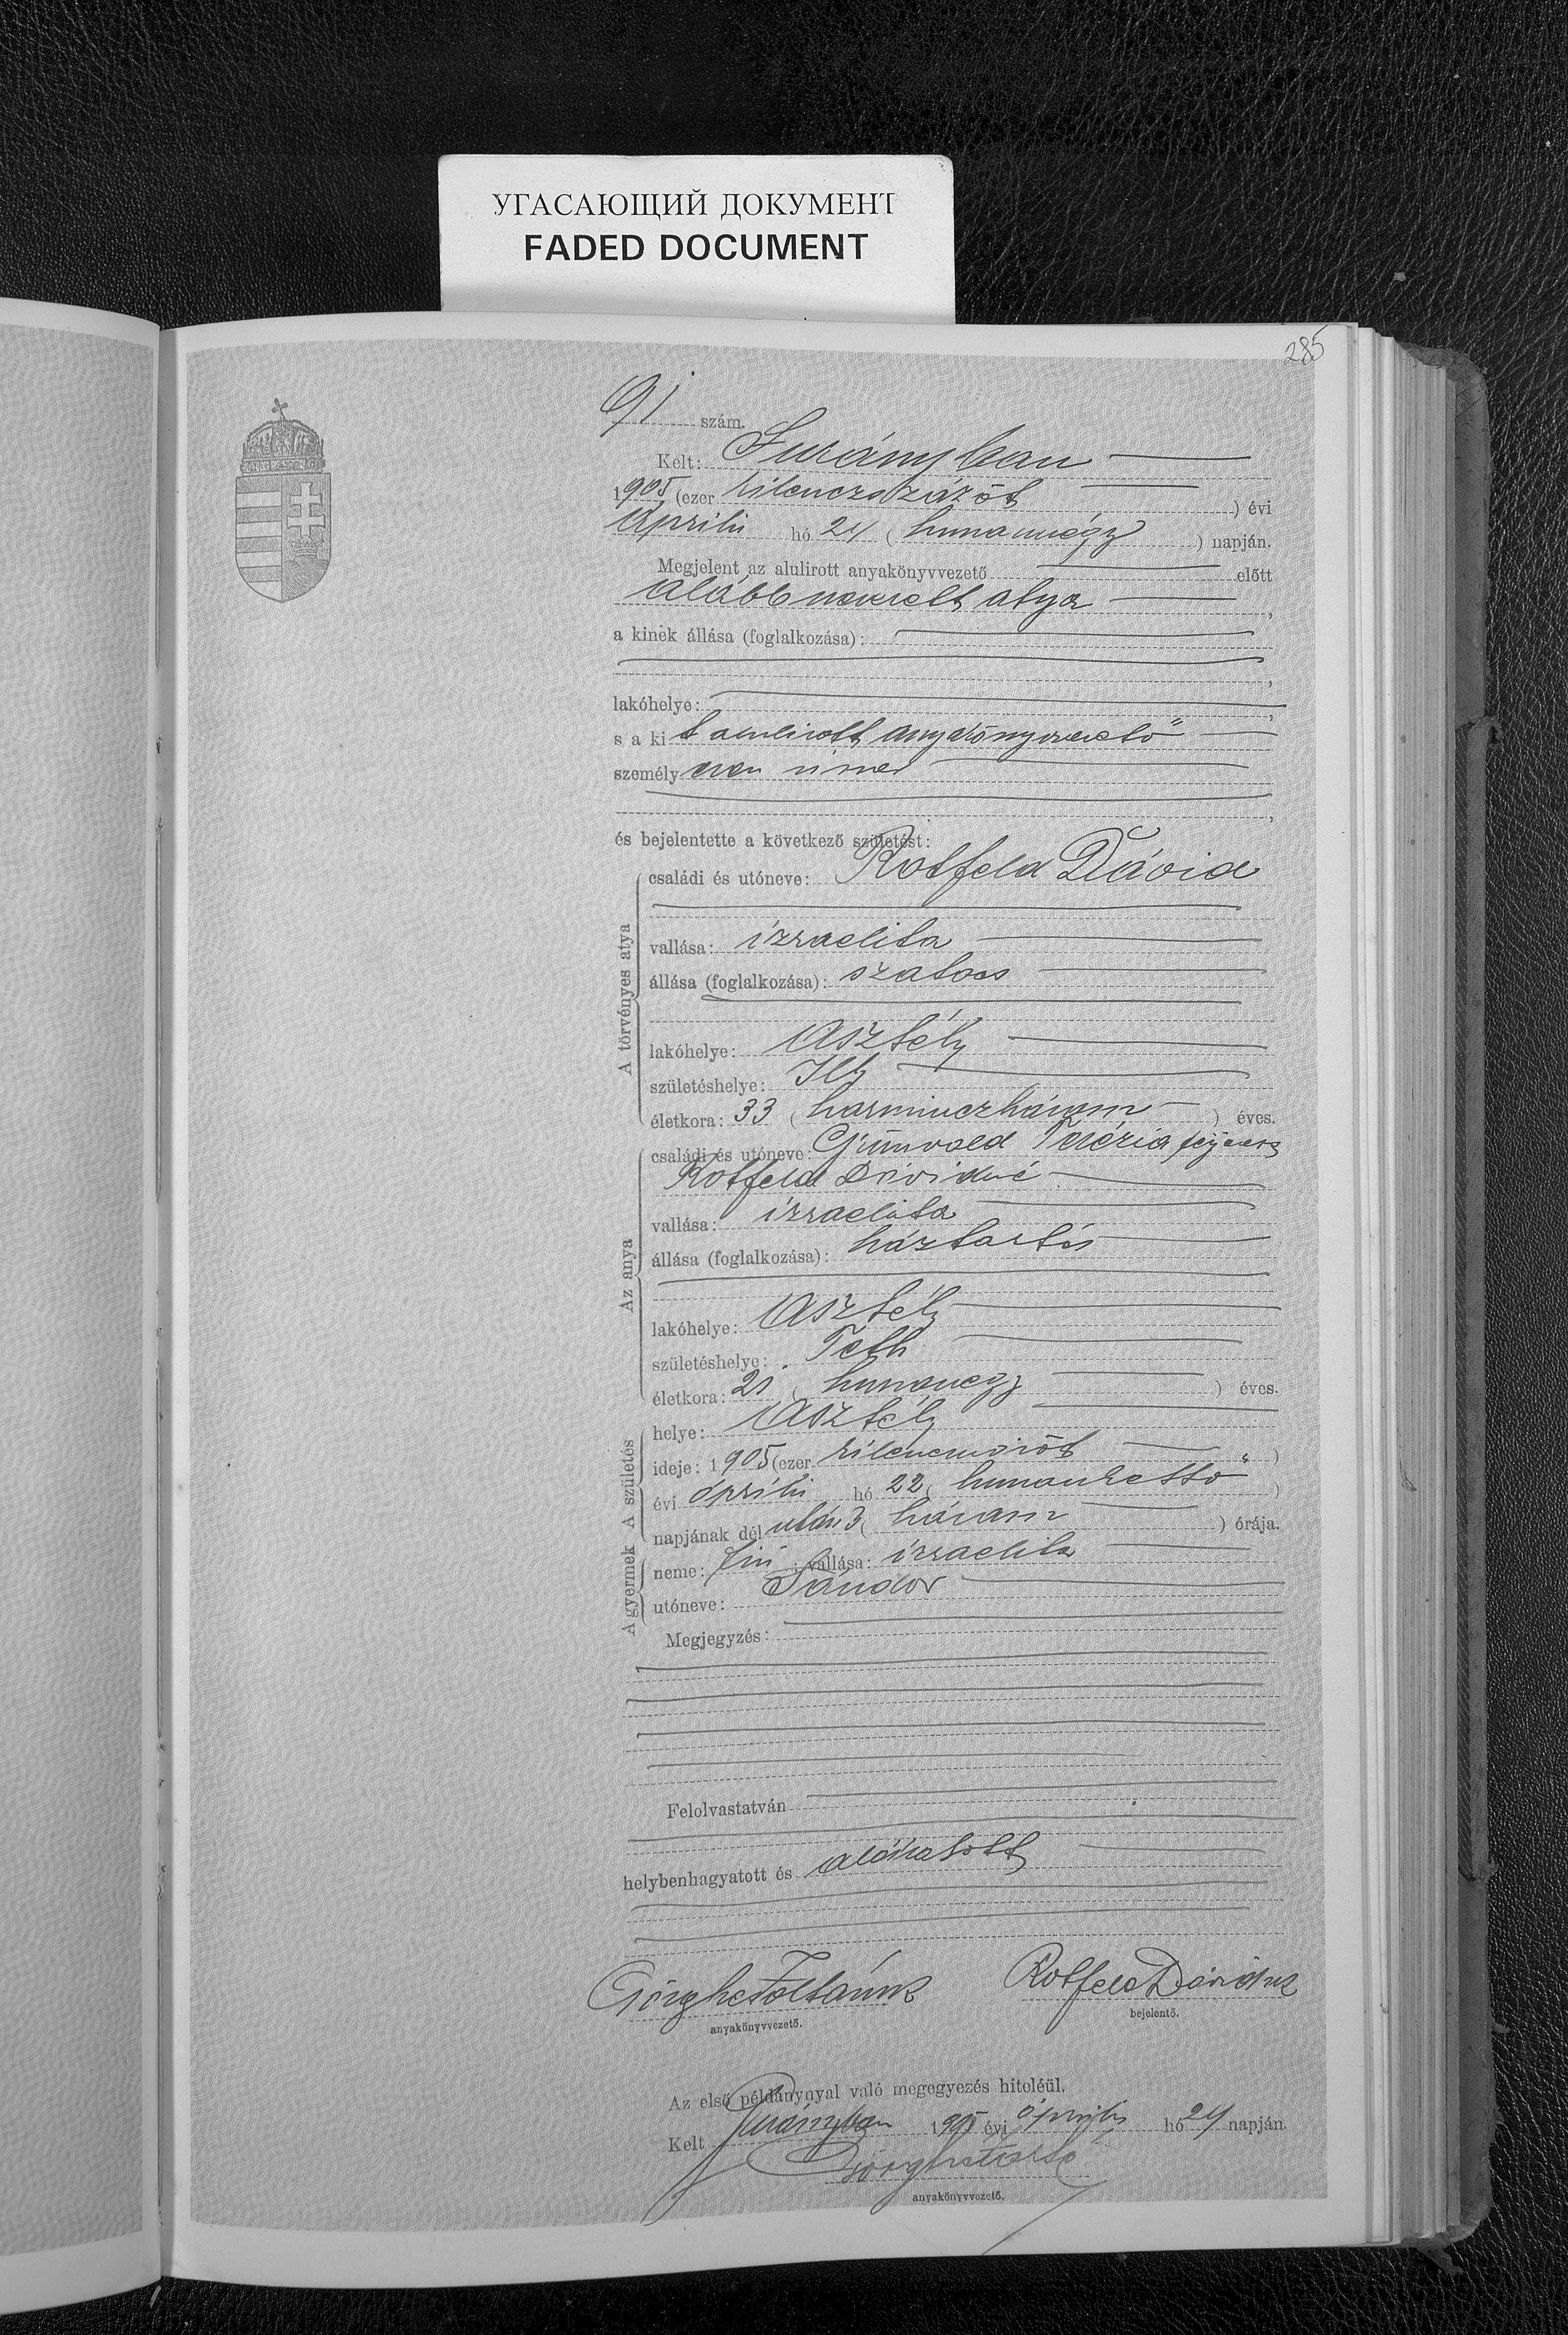 УГАСАЮЩИЙ ДОКУМЕНТ
FADED DOCUMENT
285
91 szám.
Kelt: Surányban
1905 (ezer kilenczszázöt ) évi
április hó 24 ( huszannégy ) napján.
Megjelent az alulirott anyakönyvvezető előtt
alább nevezett atya ,
a kinek állása (foglalkozása):
,
lakóhelye: ,
s a ki t alulirott anyakönyvvezető
személy esen ismer
,
és bejelentette a következő születést:
A törvényes atya
családi és utóneve: Rotfeld Dávid
vallása: izraelita
állása (foglalkozása): szatocs
lakóhelye: Asztély
születéshelye: Ilk
életkora: 33 ( harminczhárom ) éves.
Az anya
családi és utóneve: Grünvald Terézia férjezett
Rotfeld Dávidné
vallása: izraelita
állása (foglalkozása): háztartás
lakóhelye: Asztély
születéshelye:
életkora: 21 ( huszonegy ) éves.
A születés
helye: Asztély
ideje: 1905 (ezer kilenczszázöt )
évi április hó 22 ( huszonkettő )
napjának dél után 3 ( három ) órája.
A gyermek
neme: fiú ; vallása: izraelita
utóneve: Sándor
Megjegyzés:
Felolvastatván
helybenhagyatott és aláiratott
anyakönyvvezető.
Rotfeld Dávid
bejelentő.
Az első példánynyal való megegyezés hiteléül.
Kelt Surányban 1905 évi április hó 24 napján.
anyakönyvvezető.